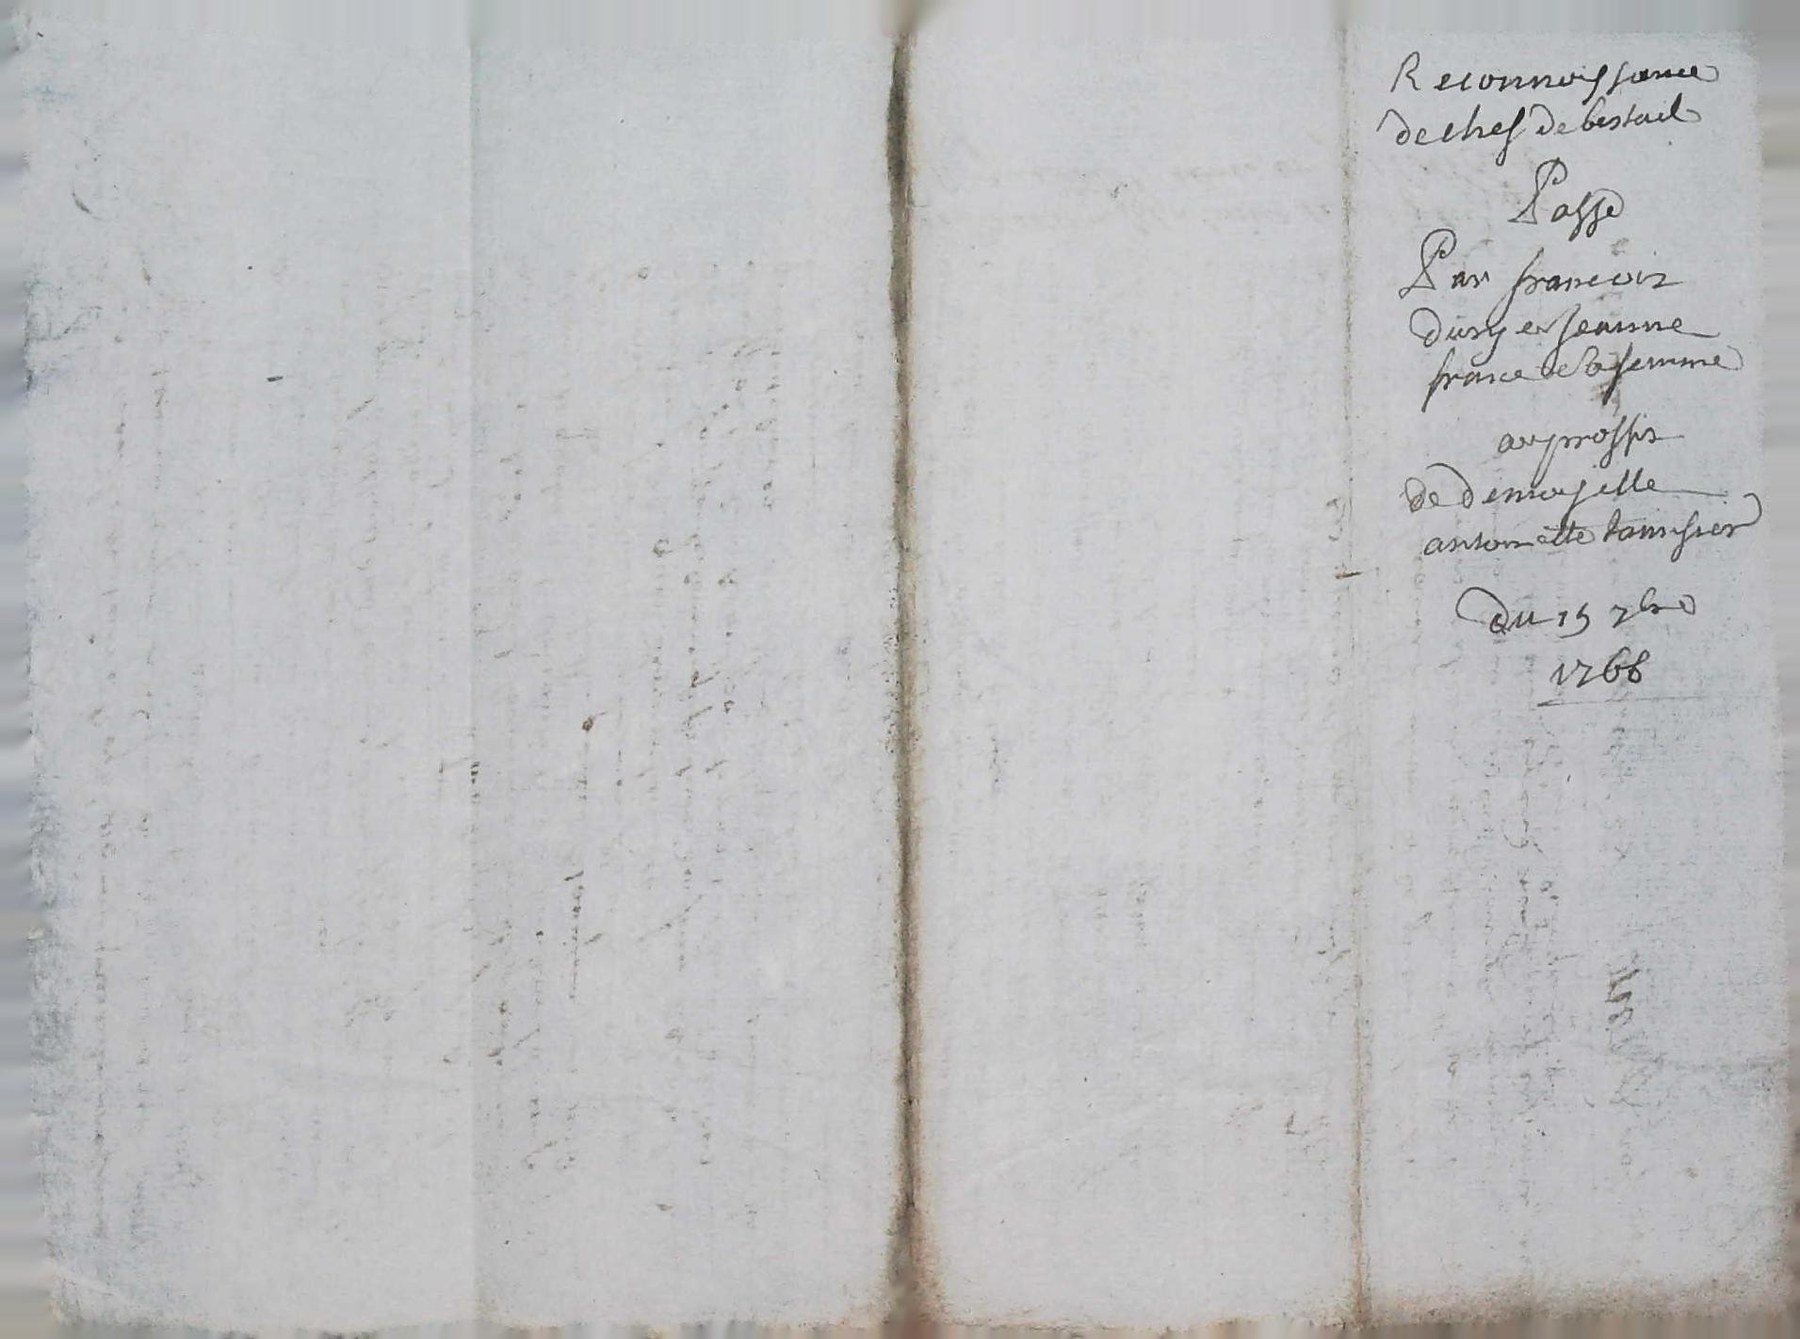 Reconnoissance
de chef de bestail
Passé
Par francois
Dury et Jeanne
france sa femme
au proffit
de demoiselle
antoinette
Du 15 7bre
1768